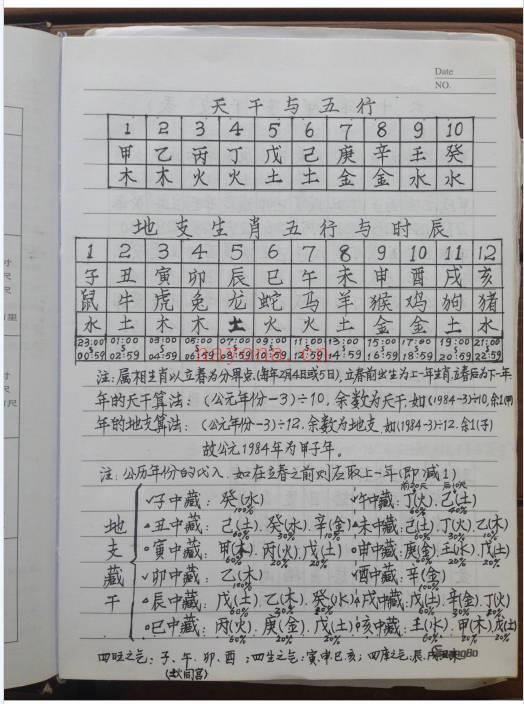 Date
NO.
天干与五行
1 2 3 4 5 6 7 8 9 10
甲 乙 丙 丁 戊 己 庚 辛 壬 癸
木 木 火 火 土 土 金 金 水 水
地支生肖五行与时辰
1 2 3 4 5 6 7 8 9 10 11 12
子 丑 寅 卯 辰 巳 午 未 申 酉 戌 亥
鼠 牛 虎 兔 龙 蛇 马 羊 猴 鸡 狗 猪
水 土 木 木 土 火 火 土 金 金 土 水
23:00 01:00 03:00 05:00 07:00 09:00 11:00 13:00 15:00 17:00 19:00 21:00
00:59 02:59 04:59 06:59 08:59 10:59 12:59 14:59 16:59 18:59 20:59 22:59
注:属相生肖以立春为分界点(每年2月4日或5日),立春前出生为上一年生肖,立春后为下一年.
年的天干算法:(公元年份-3)÷10,余数为天干,如(1984-3)÷10,余1(甲)
年的地支算法:(公元年份-3)÷12,余数为地支,如(1984-3)÷12,余1(子)
故公元1984年为甲子年。
注:公历年份的代入,如在立春之前则应取上一年(即减1)
前20天 后10天
子中藏:癸(水) 午中藏:丁(火).己(土)
100% 60% 40%
丑中藏:己(土).癸(水).辛(金) 未中藏:己(土).丁(火).乙(木)
60% 30% 10% 60% 30% 10%
寅中藏:甲(木).丙(火).戊(土) 申中藏:庚(金).壬(水).戊(土)
60% 20% 20% 60% 20% 20%
地支藏干
卯中藏:乙(木) 酉中藏:辛(金)
100% 100%
辰中藏:戊(土).乙(木).癸(水) 戌中藏:戊(土).辛(金).丁(火)
60% 20% 60% 30%
巳中藏:丙(火).庚(金).戊(土) 亥中藏:壬(水).甲(木)戊(土)
60% 20% 20% 60% 20% 20%
四旺之气:子、午、卯、酉;四生之气:寅.申.巳.亥;四库之气:辰.戌